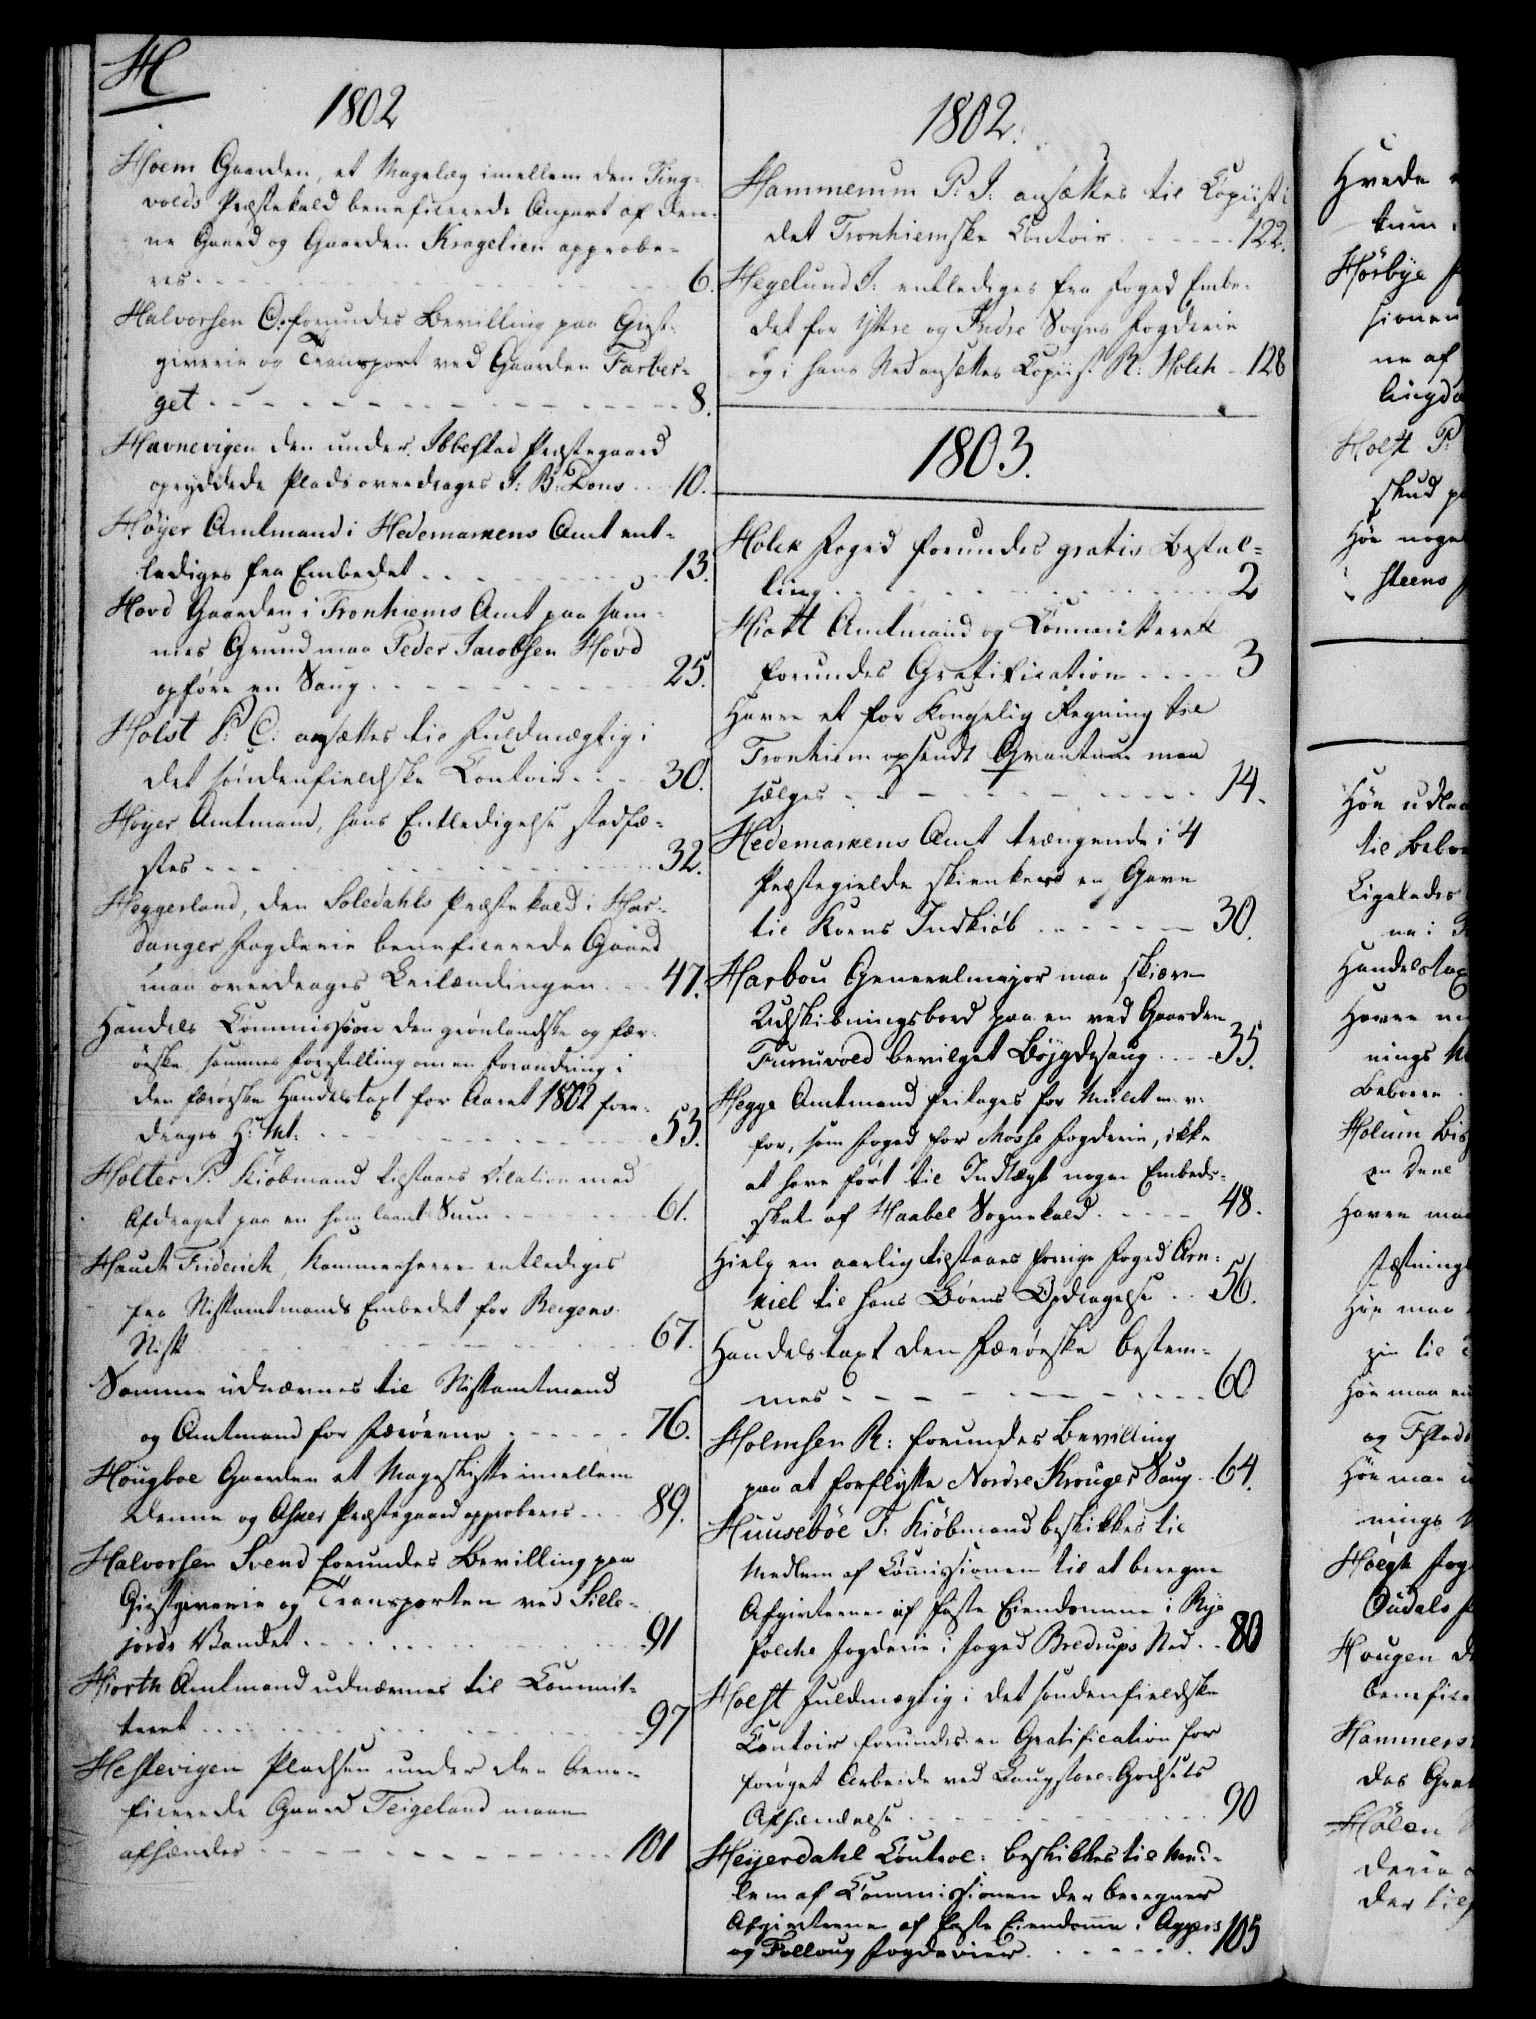 H
1802
Hoem Gaarden, et Magelæg imellem den Ting-
volds Præstekald beneficerede Anpart af den-
ne Gaard og Gaarden Kragelien approbe-
res 6.
Halvorsen O. forundes Bevilling paa Giest-
giverie og Transport ved Gaarden Farber-
get 8.
Havnevigen den under Ibbestad Præstegaard
opryddede Plads overdrages J: B: Lons 10.
Høyer Amtmand i Hedemarkens Amt ent-
lediges fra Embedet 13.
Hovd Gaarden i Tronhiems Amt paa sam-
mes Grund maa Peder Jacobsen Hovd
opføre en Saug 25.
Holst P. C. ansættes til Fuldmægtig i
det søndenfieldske Contoir 30.
Høyer Amtmand, hans Entledigelse stadfæ-
stes 32.
Heggerland, den Soledahls Præstekald i Har-
danger Fogderie beneficerede Gaard
maa overdrages Leilændingen 47.
Handels Commission den grønlandske og fær-
øeske, sammes Forestilling om en Forandring i
den færøeske Handelstaxt for Aaret 1802 fore-
drages H: M: 53.
Holter P. Kiøbmand tilstaaes Dilation med
Afdraget paa en ham laant Sum 61.
Hauch Friderich, Kammerherre entlediges
fra Stiftamtmands Embedet for Bergens
Stift 67.
Samme udnævnes til Stiftamtmand
og Amtmand for Færøerne 76.
Hougboe Gaarden et Mageskifte imellem
denne og Asker Præstegaard approberes 89.
Halvorsen Svend forundes Bevilling paa
Giestgiverie og Transporten ved Sille-
jords Vandet 91
Hiorth Amtmand udnævnes til Commit-
teret 97
Hestevigen Pladsen under den bene-
ficerede Gaard Teigeland maae
afhændes 101
1802.
Hammerum P. J: ansættes til Copiist i
det Tronhiemske Contoir 122.
Hegelund J: entlediges fra Foged Embe-
det for Yttre og Indre Sogns Fogderie
og i hans Sted ansættes Copiist R: Holck 128
1803.
Holck Foged forundes gratis Bestal-
ling 2
Hiort Amtmand og Committeret
forundes Gratification 3
Havre et for Kongelig Regning til
Tronhiem opsendt Qvantum maa
sælges 14.
Hedemarkens Amt trængende i 4
Præstegielde skienkes en Gave
til Korns Indkiøb 30.
Harbou Generalmajor maa skiære
Udskibningsbord paa en ved Gaarden
Furuvold bevilget Bøygdesaug 35.
Hegge Amtmand fritages for Mulct m. v.
for, som Foged for Mosse Fogderie, ikke
at have ført til Indtægt nogen Embeds-
skat af Haabel Sognekald 48.
Hielp en aarlig tilstaaes forrige Foged Arn-
kiel til hans Børns Opdragelse 56.
Handelstaxt den Færøeske bestem-
mes 60
Holmsen R: forundes Bevilling
paa at forflytte Nordre Krougs Saug 64.
Huusebøe T: Kiøbmand beskikkes til
Medlem af Commissionen til at beregne
Afgivterne af faste Eiendomme i Rye
fylke Fogderie i Foged Bredrups Sted 80
Holst Fuldmægtig i det søndenfieldske
Contoir forundes en Gratification for
forøget Arbeide ved Laugstore-Godsets
Afhændelse 90
Heyerdahl Control: beskikkes til Med-
lem af Commissionen der beregner
Afgivterne af faste Eiendomme i Aggers
og Folloug Fogderier 105
Hvede
tum
Hørbye
sionen
ne af
Holst P.
skud
Høe noget
steens
Høe
til
Ligeledes
ne i
Handelstax
Havre
nings
Beboere
Holum
en Deel
Havre maa
Fæstnings
Høe maa
zin til
Høe maa
og
Høe maa
nings
Høegh Fog
Oudals
Hougen
benefice
Hammers
das
Hølen
derie
der